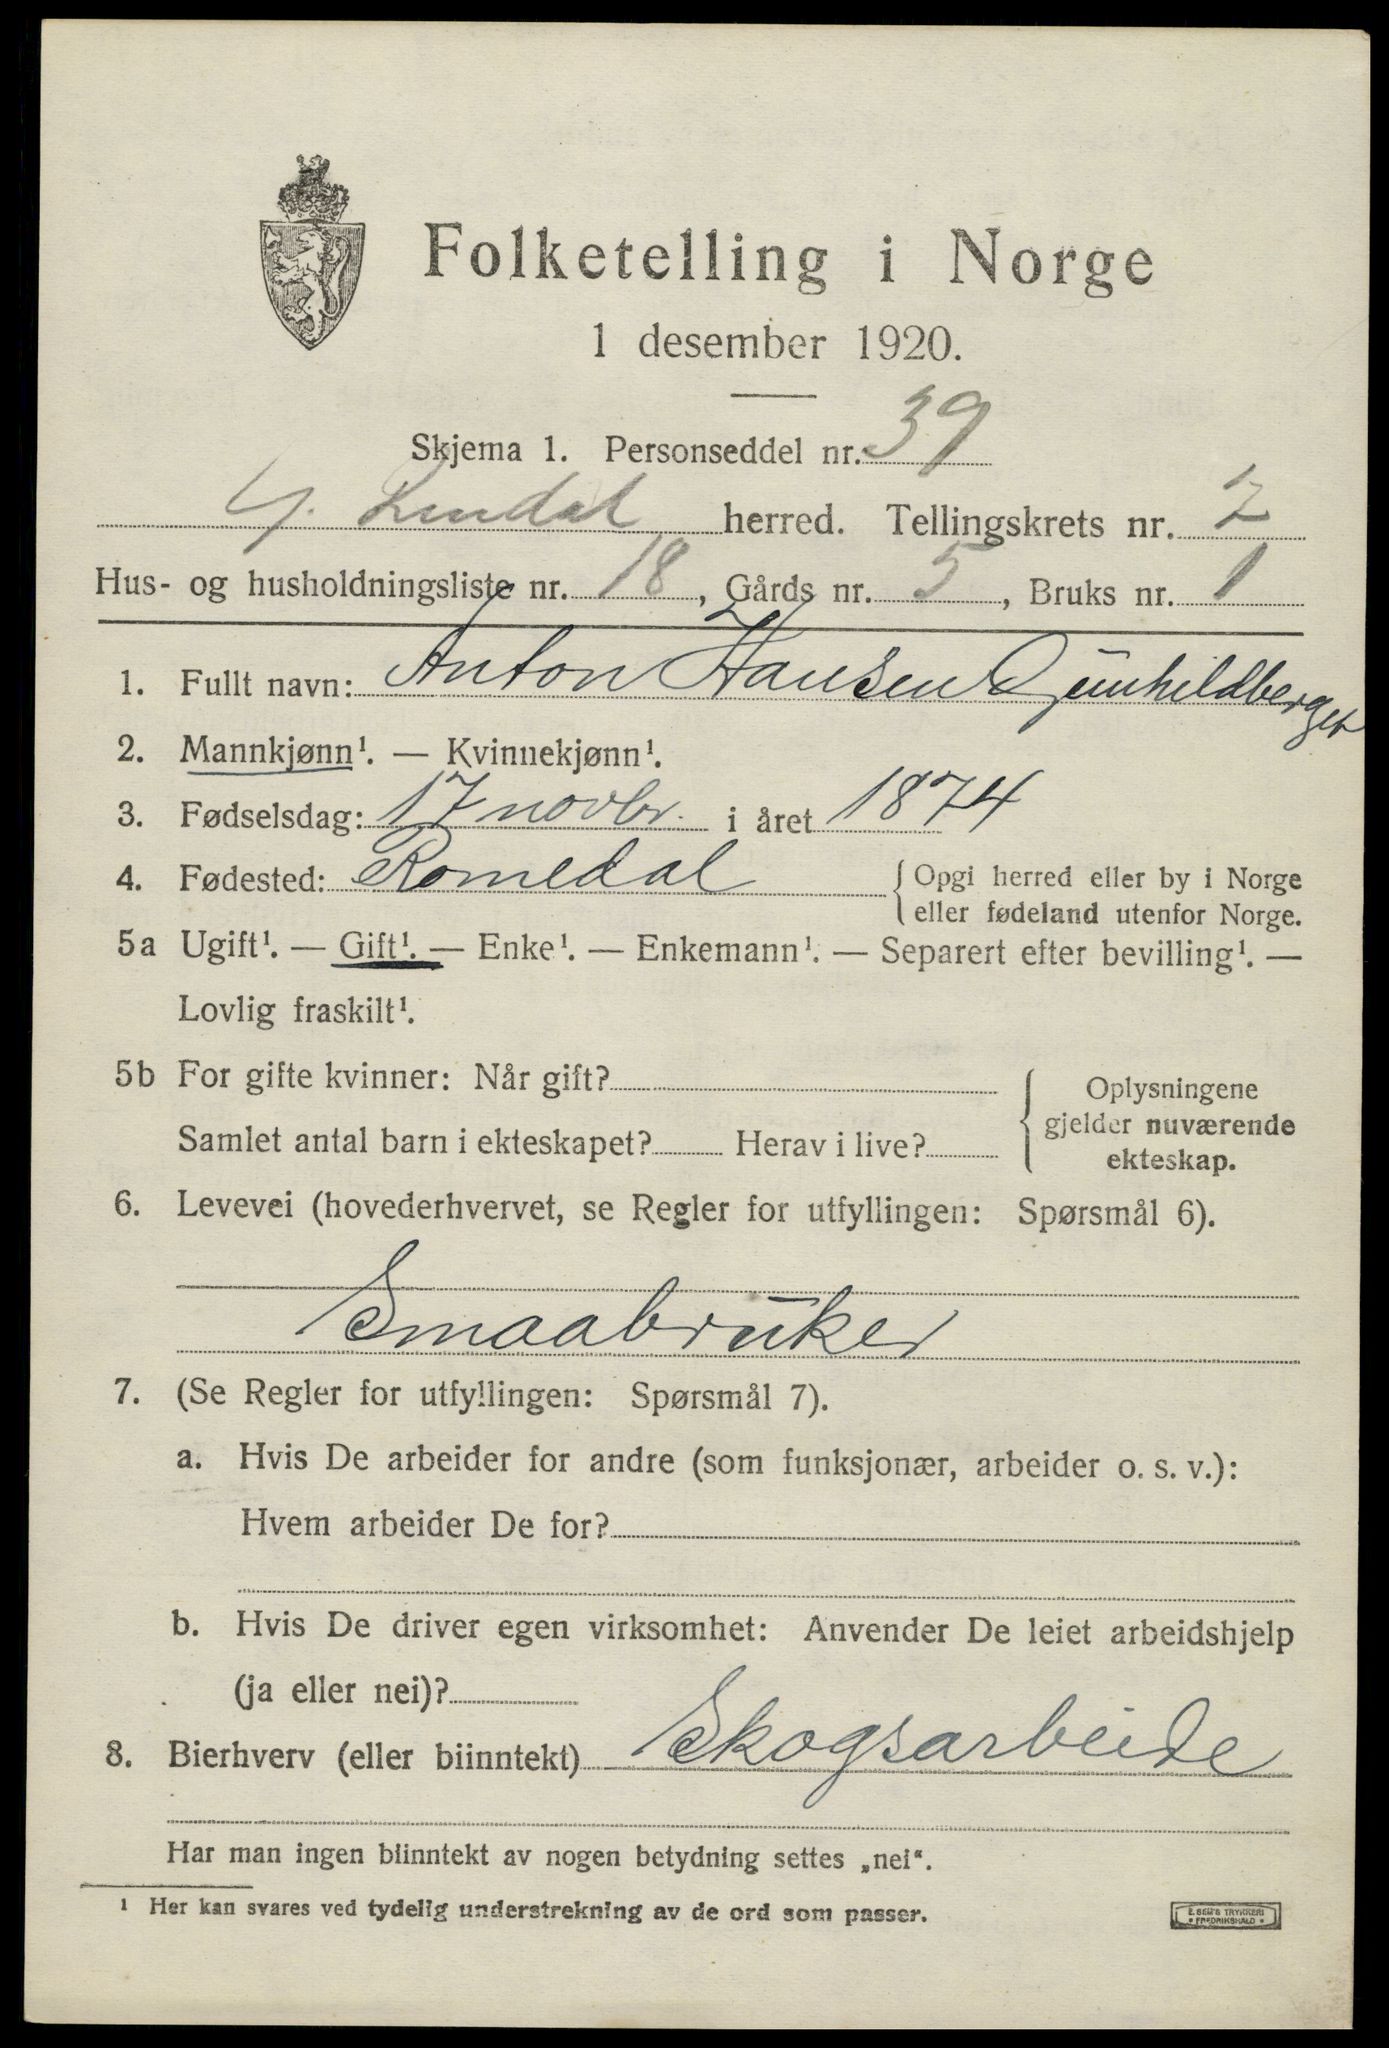 Folketelling i Norge
1 desember 1920.
Skjema 1. Personseddel nr. 39
herred. Tellingskrets nr. 2
Hus- og husholdningsliste nr. 18, Gårds nr. 5, Bruks nr. 1
1. Fullt navn: Anton Hansen Gunhildberget
2. Mannkjønn¹. — Kvinnekjønn¹.
3. Fødselsdag: 17 novbr. i året 1874
4. Fødested: Romedal { Opgi herred eller by i Norge
eller fødeland utenfor Norge.
5a Ugift¹. — Gift¹. — Enke¹. — Enkemann¹. — Separert efter bevilling¹. —
Lovlig fraskilt¹.
5b For gifte kvinner: Når gift?
Samlet antal barn i ekteskapet? Herav i live?
Oplysningene
gjelder nuværende
ekteskap.
6. Levevei (hovederhvervet, se Regler for utfyllingen: Spørsmål 6).
Smaabruker
7. (Se Regler for utfyllingen: Spørsmål 7).
a. Hvis De arbeider for andre (som funksjonær, arbeider o. s. v.):
Hvem arbeider De for?
b. Hvis De driver egen virksomhet: Anvender De leiet arbeidshjelp
(ja eller nei)?
8. Bierhverv (eller biinntekt) Skogsarbeide
Har man ingen biinntekt av nogen betydning settes „nei“.
¹ Her kan svares ved tydelig understrekning av de ord som passer.
E. SEM'S TRYKKERI
• FREDRIKSHALD •